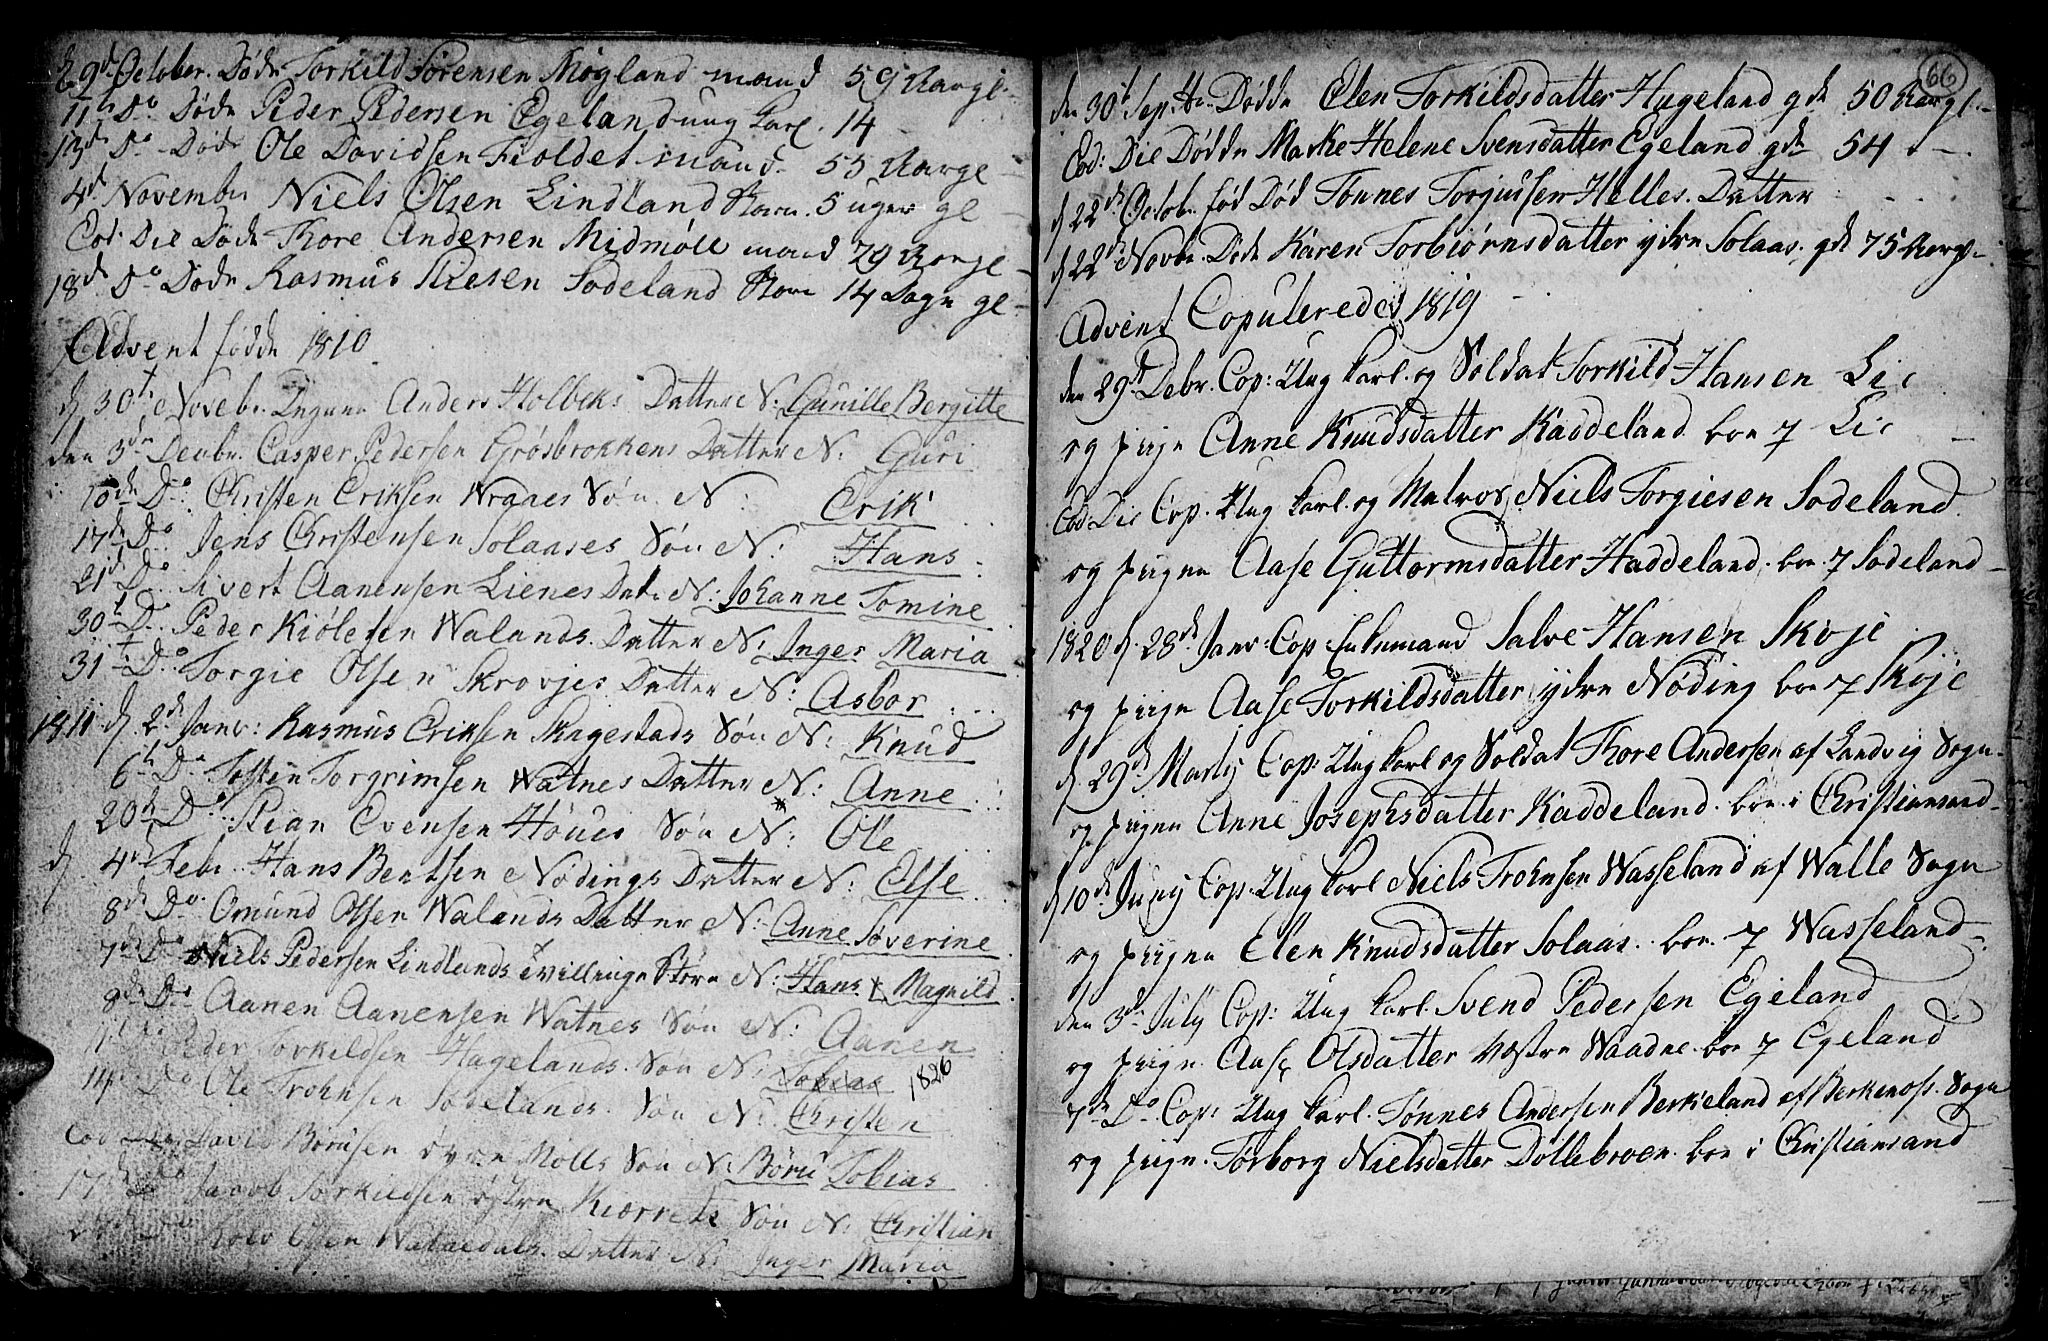 29de October. Døde Torkild Sørensen Møgland mand 59 Aar gl.
11te Do Døde Peder Pedersen Egeland ung Karl. 14 —
13de Do Døde Ole Davidsen mand 55 Aar gl —
4de November Niels Olsen Lindland Barn. 5 uger gl —
Eod. Die Døde Thore Andersen Midmøll mand 79 Aar gl —
18de Do Døde Rasmus Sodeland Barn 14 Dage gl —
Advent fødde 1810
d 30te Novebr. Anders Holbeks Datter N: Gunille Bergitte
den 3de Decbr. Casper Pedersen Grosbrokkens Datter N: Guri
10de Do. Christen Eriksen Wraaes Søn N: Erik
17de Do. Jens Christensen Solaases Søn N: Hans
21de Do. Sivert Aanensen Lienes Dat. N: Johanne Tomine
30te Do. Peder Kiølesen Walands Datter N: Inger Maria
31te Do. Torgie Olsen Skrovjes Datter N: Asbor
1811 d. 2de Janv: Rasmus Eriksen Skagestads Søn N: Knud
6te Do Tosten Torgrimsen Watnes Datter N: Anne
20de Do. Stian Evensen Høues Søn N: Ole
d 4de Febr. Hans Bentsen Nødings Datter N: Else
8de Do. Omund Olsen Walands Datter N: Anne Søverine
7de Do Niels Pedersen Lindlands Tvillinge Børn N: Hans & Magnild
8de Do Aanen Aanensen Watnes Søn N: Aanen
11te Do Peder Torkildsen Hagelands Søn N: Tobias 1826
14de Do Ole Trohnsen Sodelands Søn N: Christen
Eod Die David Børusen øvre Mølls Søn N: Børu Tobias
17de Do Jacob Torkildsen ystre Kiærrets Søn N: Christian
Do Olsen Walaedals Datter N: Inger Maria
66
den 30te Septbr. Døde Elen Torkildsdatter Hageland gde 50 Aar gl.
Eod: Die Døde Marke Helene Svensdatter Egeland gde 54 —
d 22de Octob. fød Død Tønnes Torjussen Helles. Datter
d 22de Novbr Døde Karen Torbiørnsdatter ydre Solaas. gde 75 Aar gl —
Advent Copulerede 1819
den 29de Debr. Cop: Ung Karl. og Soldat Torkild Hansen Lie
og pige Anne Knudsdatter Kaddeland boe 7 Lie —
Eod Die Cop. Ung Karl. og Matros Niels Torgiesen Sodeland
og pigen Aase Guttormsdatter Haddeland. boe 7 Sodeland —
1820 d. 28de Janv: Cop Enkemand Salve Hansen Skoje
og pige Aase Torkildsdatter ydre Nøding boe 7 Skoje
d 29de Marty Cop: Ung Karl og Soldat Thore Andersen af Landvig Sogn —
og pigen Anne Josephsdatter Kaddeland. boe i Christiansand —
d 10de Juny Cop: Ung Karl Niels Trohnsen Wasseland af Walle Sogn
og pigen Elen Knudsdatter Solaas. boe 7 Wasseland —
den 3de July Cop: Ung Karl. Svend Pedersen Egeland
og pige. Aase Olsdatter Vestre Waadne. boe 7 Egeland
7de Do Cop: Ung Karl. Tønnes Andersen Berkeland af Berkenoss. Sogn
og pige. Torborg Nielsdatter Dollebroen. boe i Christiansand